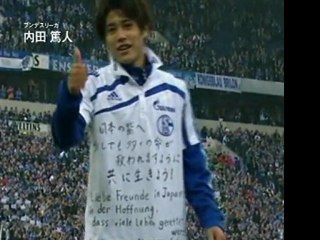 ブンデスリーガ
内田 篤人
GAZPROM
adidas
日本の皆へ
少しでも多くの命が
救われますように
共に生きよう!
Liebe Freunde in Japan
in der Hoffnung,
dass viele Leben gerettet